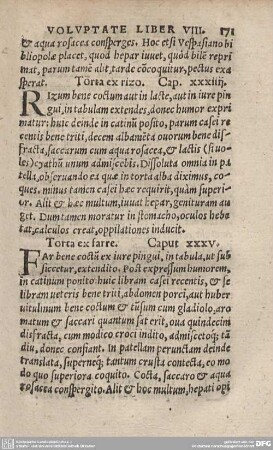 VOLVPTATE LIBER VIII. 171
& aqua rosacea consperges. Hoc etsi Vespasiano bi
bliopolæ placet, quod hepar iuuet, quod bilē repri
mat, parum tamē alit, tarde cōcoquitur, pectus exa
sperat. Torta ex rizo. Cap. xxxiiij.
RIzum bene coctum aut in lacte, aut in iure pin
gui, in tabulam extendes, donec humor expri
matur: huic deinde in catinū posito, parum casei re
centis bene triti, decem albamēta ouorum bene dis
fracta, saccarum cum aqua rosacea, & lactis (si uo
les) cyathū unum admiscebis. Dissoluta omnia in pa
tella, obseruando ea quæ in torta alba diximus, co-
ques. minus tamen casei hæc requirit, quàm superi
or. Alit & hæc multum, iuuat hepar, genituram au
get. Dum tamen moratur in stomacho, oculos hebe
tat, calculos creat, oppilationes inducit.
Torta ex farre. Caput xxxv.
FAr bene coctū ex iure pingui, in tabula, ut sub
siccetur, extendito. Post expressum humorem,
in catinum ponito: huic libram casei recentis, & se
libram ueteris bene triti, abdomen porci, aut huber
uitulinum bene coctum & tūsum cum gladiolo, aro
matum & saccari quantum sat erit, oua quindecim
disfracta, cum modico croci indito, admiscetoq́; tā
diu, donec confiant. In patellam perunctam deinde
translata, superneq́; tantum crusta contecta, eo mo
do quo superiora coquito. Cocta, saccaro & aqua
rosacea conspergito. Alit & hoc multum, hepati opi